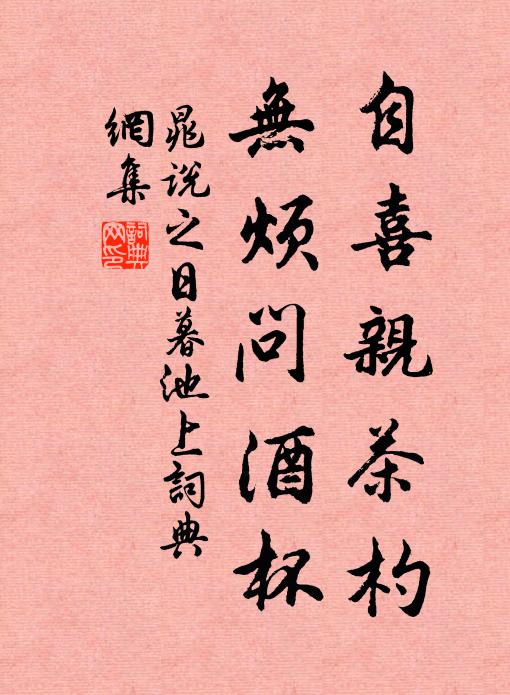 自喜親茶杓
無煩問酒杯
晁說之日暮池上詞典
網集
詞典
网印